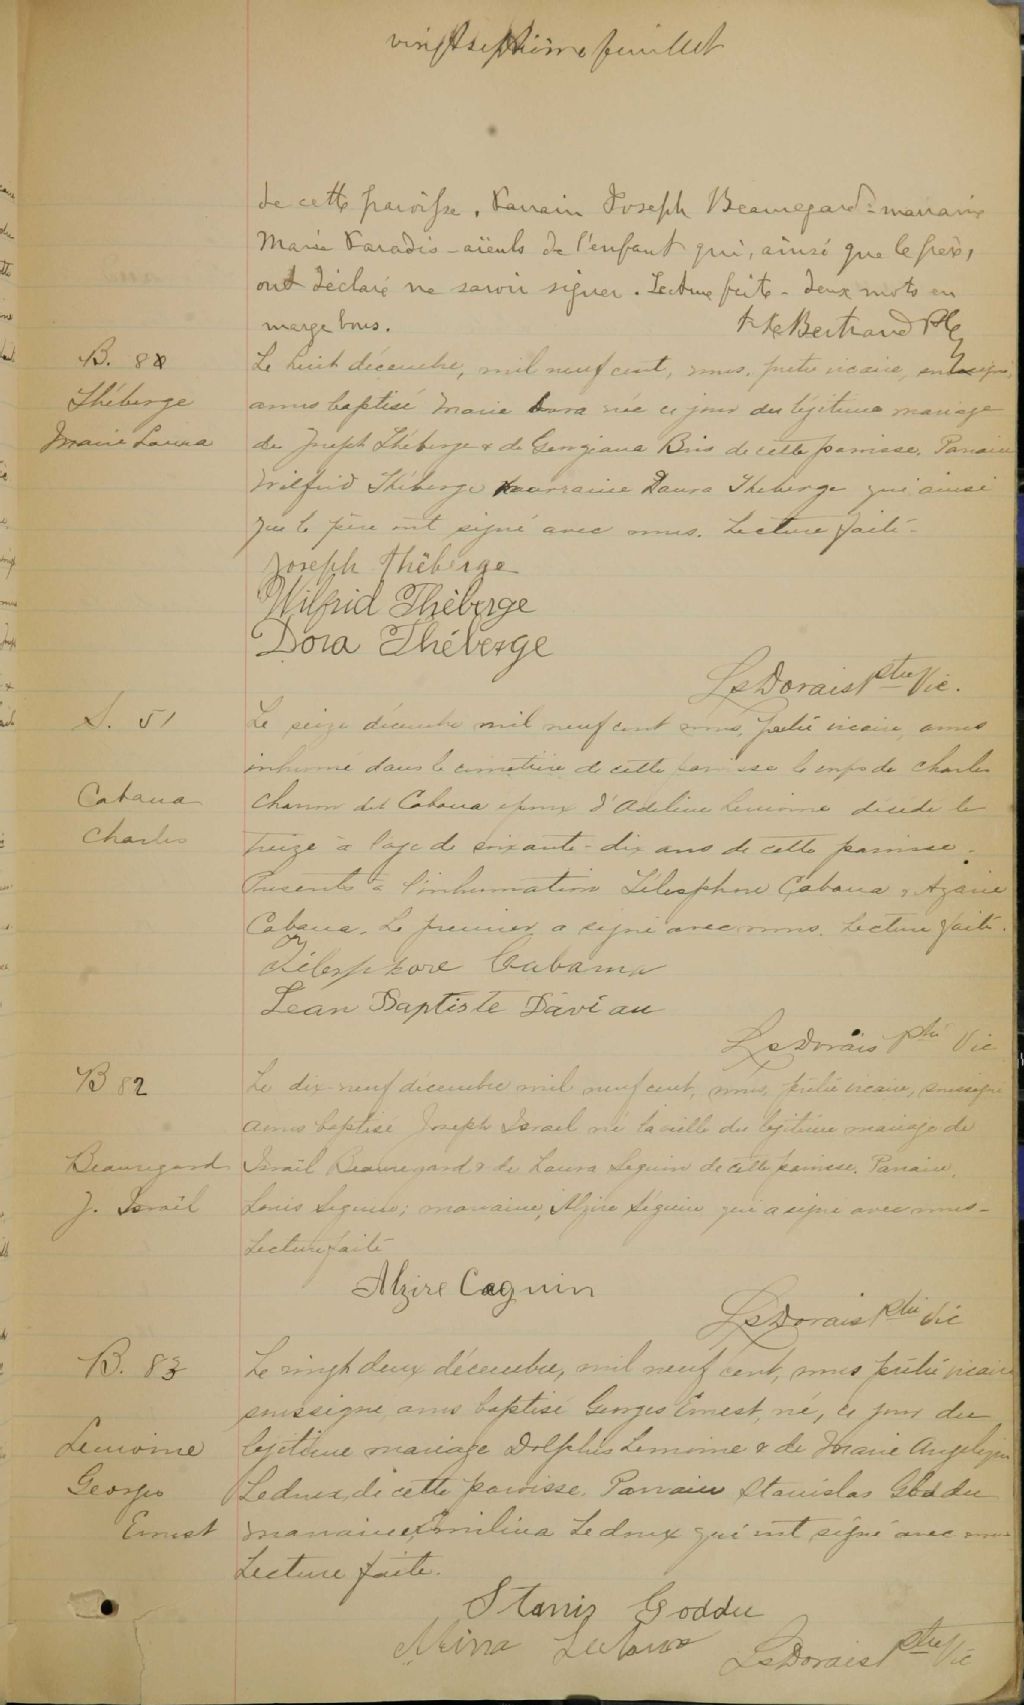 vingtseptième feuillet
de cette paroisse. Parrain Joseph Beauregard - marraine
Marie Paradis - aïeuls de l'enfant qui, ainsi que le père,
ont déclaré ne savoir signer. Lecture faite - deux mots en
marge bons. Bertrand Ptre
B. 81
Le huit décembre, mil neuf cent, nous, prêtre vicaire, soussigné,
Théberge
avons baptisé Marie née ce jour du légitime mariage
Marie Laura
de Joseph Théberge & de Georgiana Bris de cette paroisse. Parrain
Wilfrid Théberge marraine Daura Theberge qui ainsi
que le père ont signé avec nous. Lecture faite -
Joseph théberge
Wilfrid Théberge
Dora Théberge
Ls Dorais ptre Vic.
S. 51
Le seize décembre mil neuf cent nous, prêtre vicaire, avons
inhumé dans le cimetière de cette paroisse le corps de Charles
Cabana
Charron dit Cabana epoux d'Adeline Lemoine décédé le
Charles
treize à l'age de soixante-dix ans de cette paroisse.
Presents à l'inhumation Télesphore Cabana & Azarie
Cabana. Le premier a signé avec nous. Lecture faite.
Télesphore Cabana
Jean Baptiste Daviau
Ls Dorais ptre Vic
B 82
Le dix-neuf décembre mil neuf cent, nous, prêtre vicaire, soussigné
avons baptisé Joseph Israel né la veille du légitime mariage de
Beauregard
Israël Beauregard & de Laura Seguin de cette paroisse. Parrain,
J. Israël
Louis Seguin; marraine, Alzire Séguin qui a signé avec nous -
Lecture faite
Alzire Caguin
Ls Dorais ptre Vic
B. 83
Le vingt deux décembre, mil neuf cent, nous prêtre vicaire
soussigné avons baptisé Georges Ernest, né, ce jour du
Lemoine
légitime mariage Dolphis Lemoine & de Marie Angelique
Georges
Ledoux, de cette paroisse. Parrain Stanislas Goddu
Ernest
marraine, Emilina Ledoux qui ont signé avec nous
Lecture faite.
Stanis Goddu
Ls Dorais ptre Vic